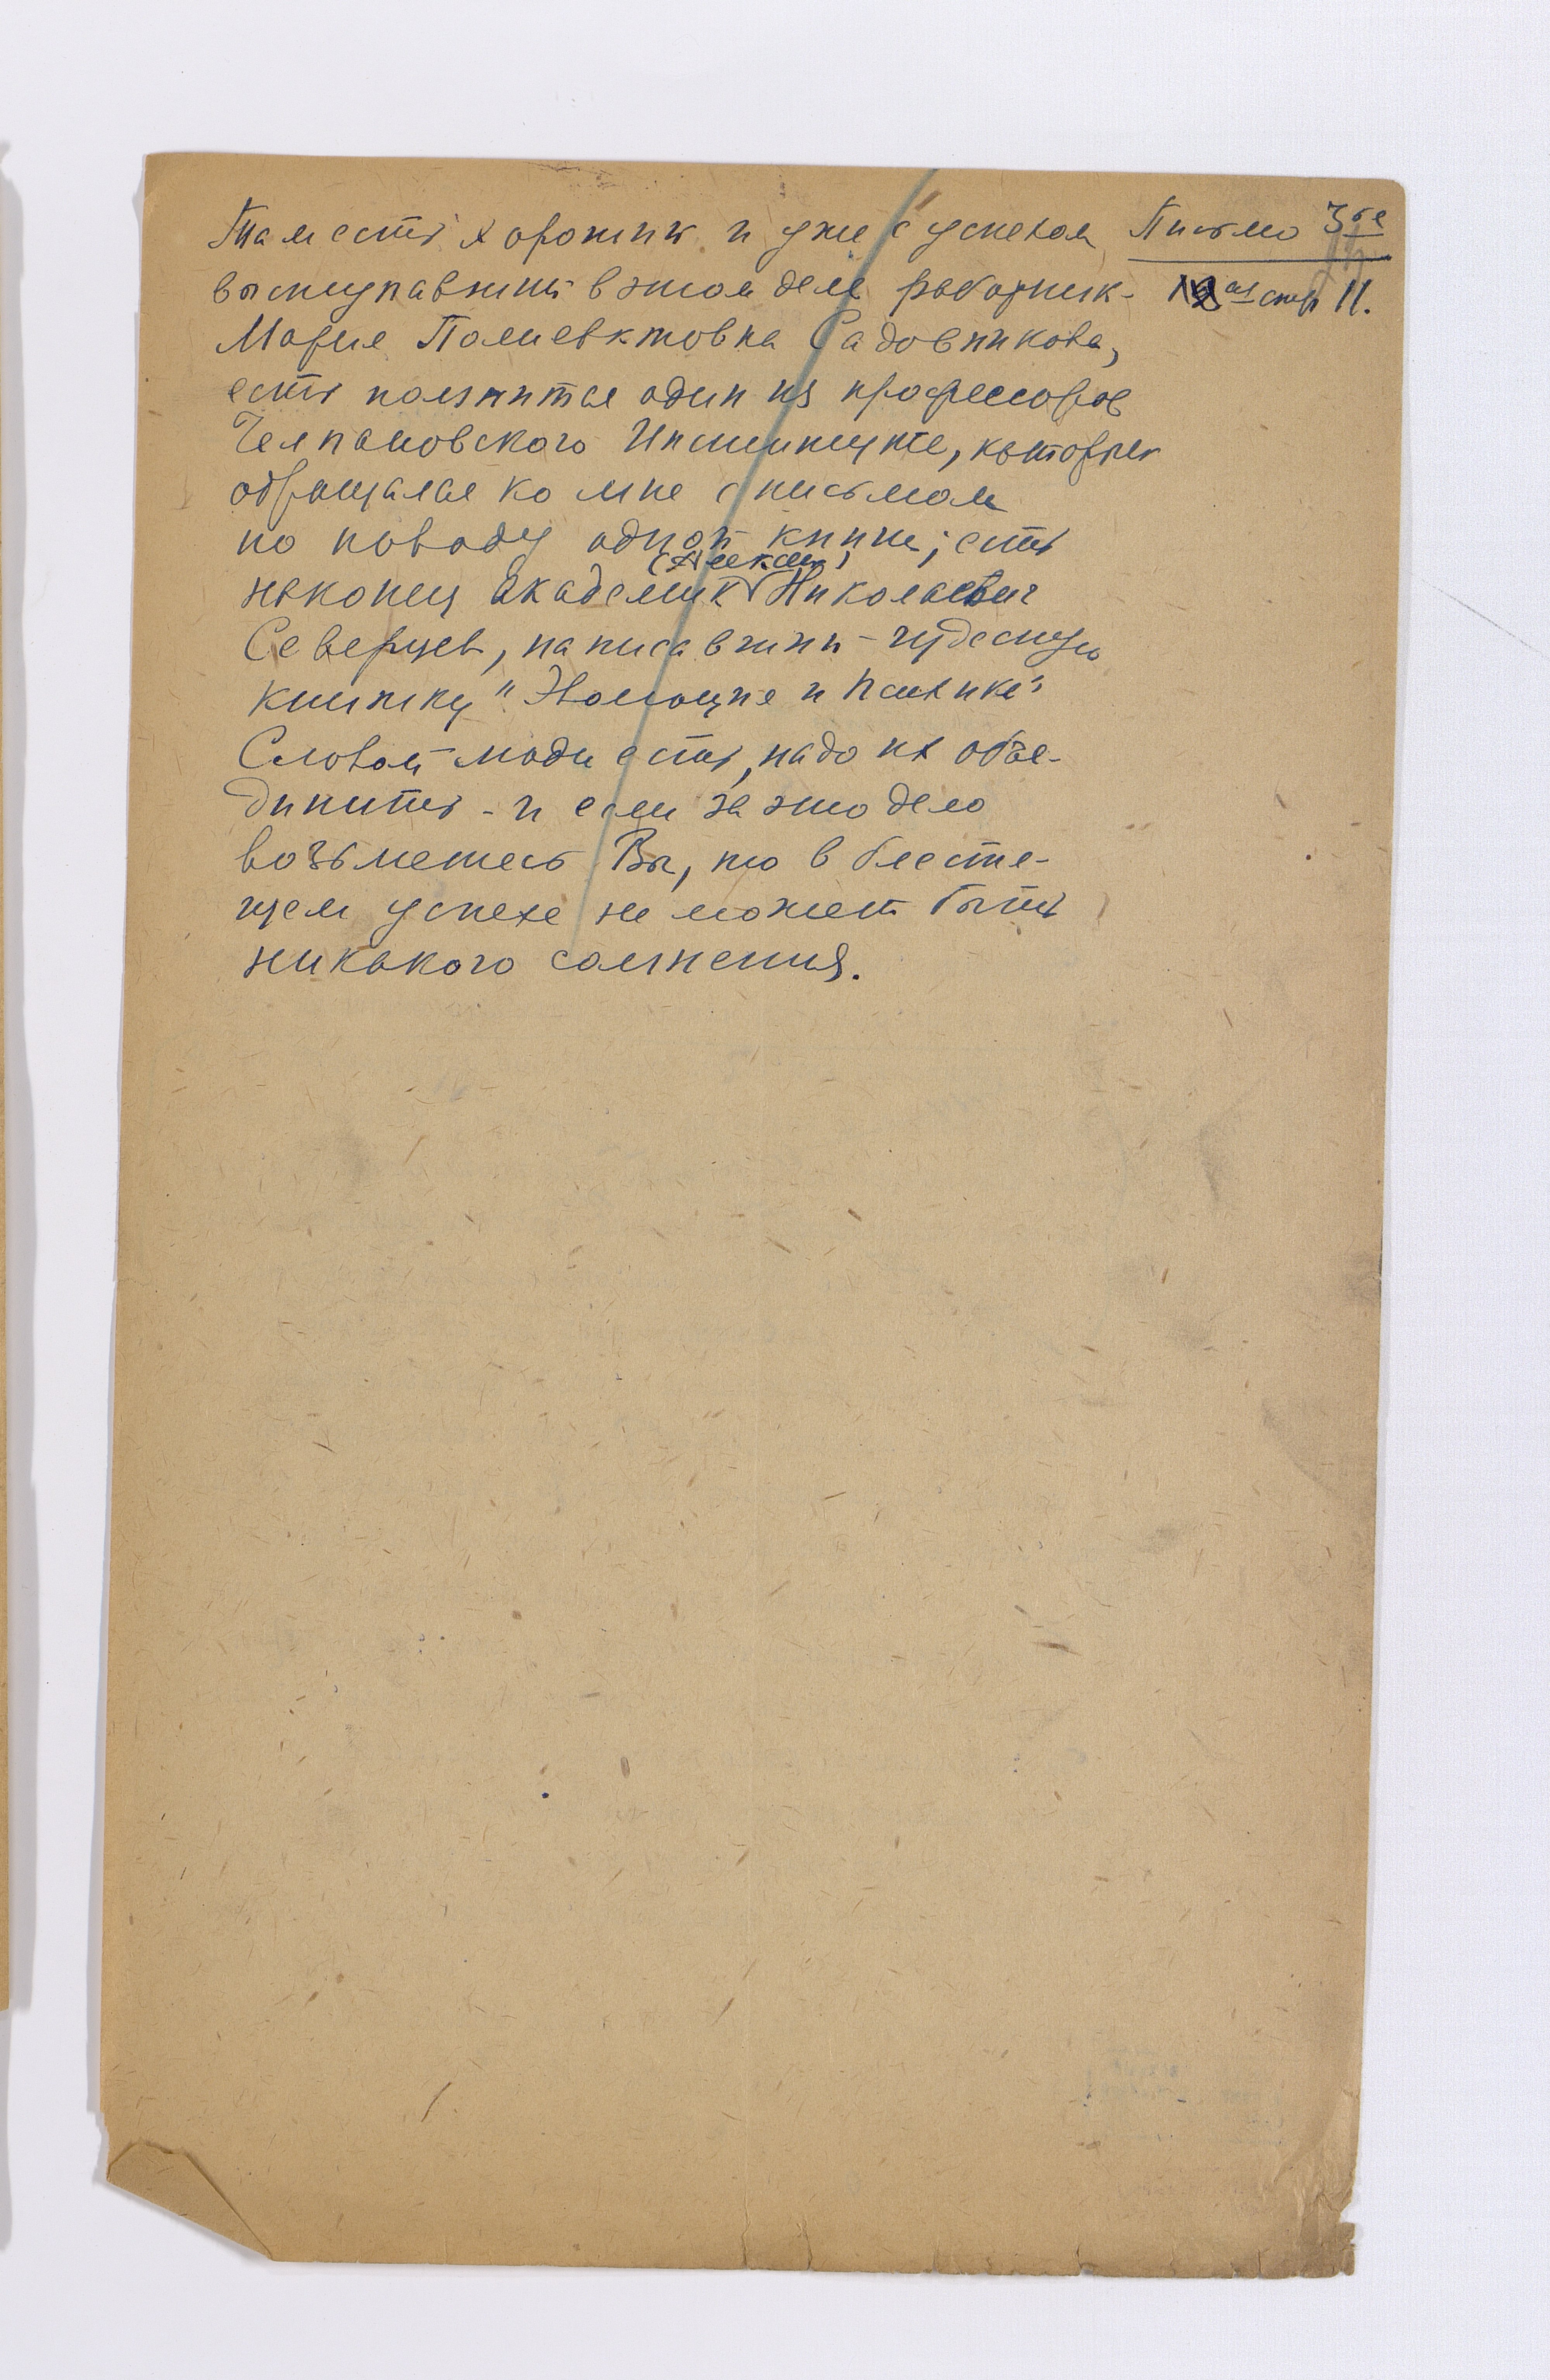 Письмо 3ье
ая стр 11.
Там есть хороший и уже с успехом
выступавший в этом деле работник -
Мария Полиевктовна Садовникова,
есть помнится один из профессоров
Челпановского Института, который
обращался ко мне с письмом
по поводу одной книги; есть
наконец академик (Алексей) Николаевич
Северцев, написавший чудесную
книжку "Эволюция и психика"
Словом люди есть, надо их объе-
динить - и если за это дело
возьметесь Вы, то в блестя-
щем успехе не может быть
никакого сомнения.